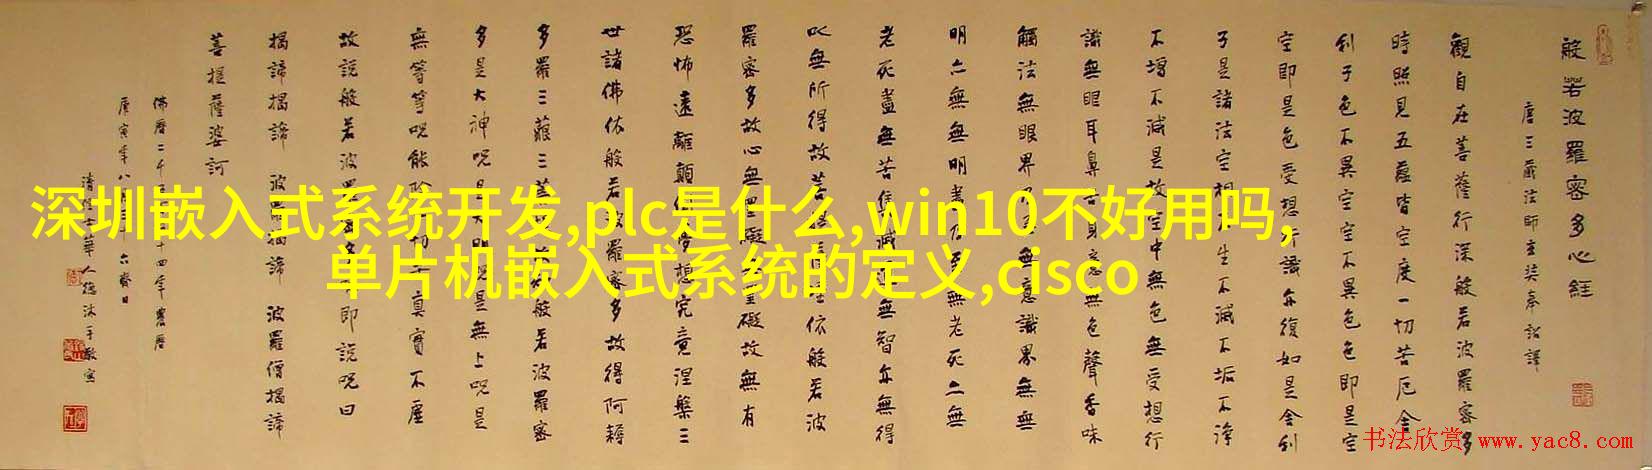 深圳嵌入式系统开发,plc是什么,win10不好用吗,
单片机嵌入式系统的定义,cisco
般若波羅密多心経
唐三藏法師玄奘奉詔譯
觀自在菩薩行深般若波羅密多
時照見五蘊皆空度一切苦厄舍
利子色不異空空不異色色即是空
空即是色受想行識亦復如是舍利
子是諸法空相不生不滅不垢不淨
不增不減是故空中無色無受想行
識無眼耳鼻舌身意無色聲香味
觸法無眼界乃至無意識界無無
明亦無無明盡乃至無老死亦無
老死盡無苦集滅道無智亦無得
以無所得故菩提薩埵依般若波
羅密多故心無罣礙無罣礙故無有
恐怖遠離顛倒夢想究竟涅槃三
世諸佛依般若波羅密多故得阿耨
多羅三藐三菩提故知般若波羅密
多是大神呪是大明呪是無上呪是
無等等呪能除一切苦真實不虛
故說般若波羅密多呪即說呪曰
揭諦揭諦 波羅揭諦 波羅僧揭諦
菩提薩婆訶
佛曆二千五十四年農曆
庚寅年八月六齋日
清士華人德沐手敬寫
书法欣赏 www.yac8.com